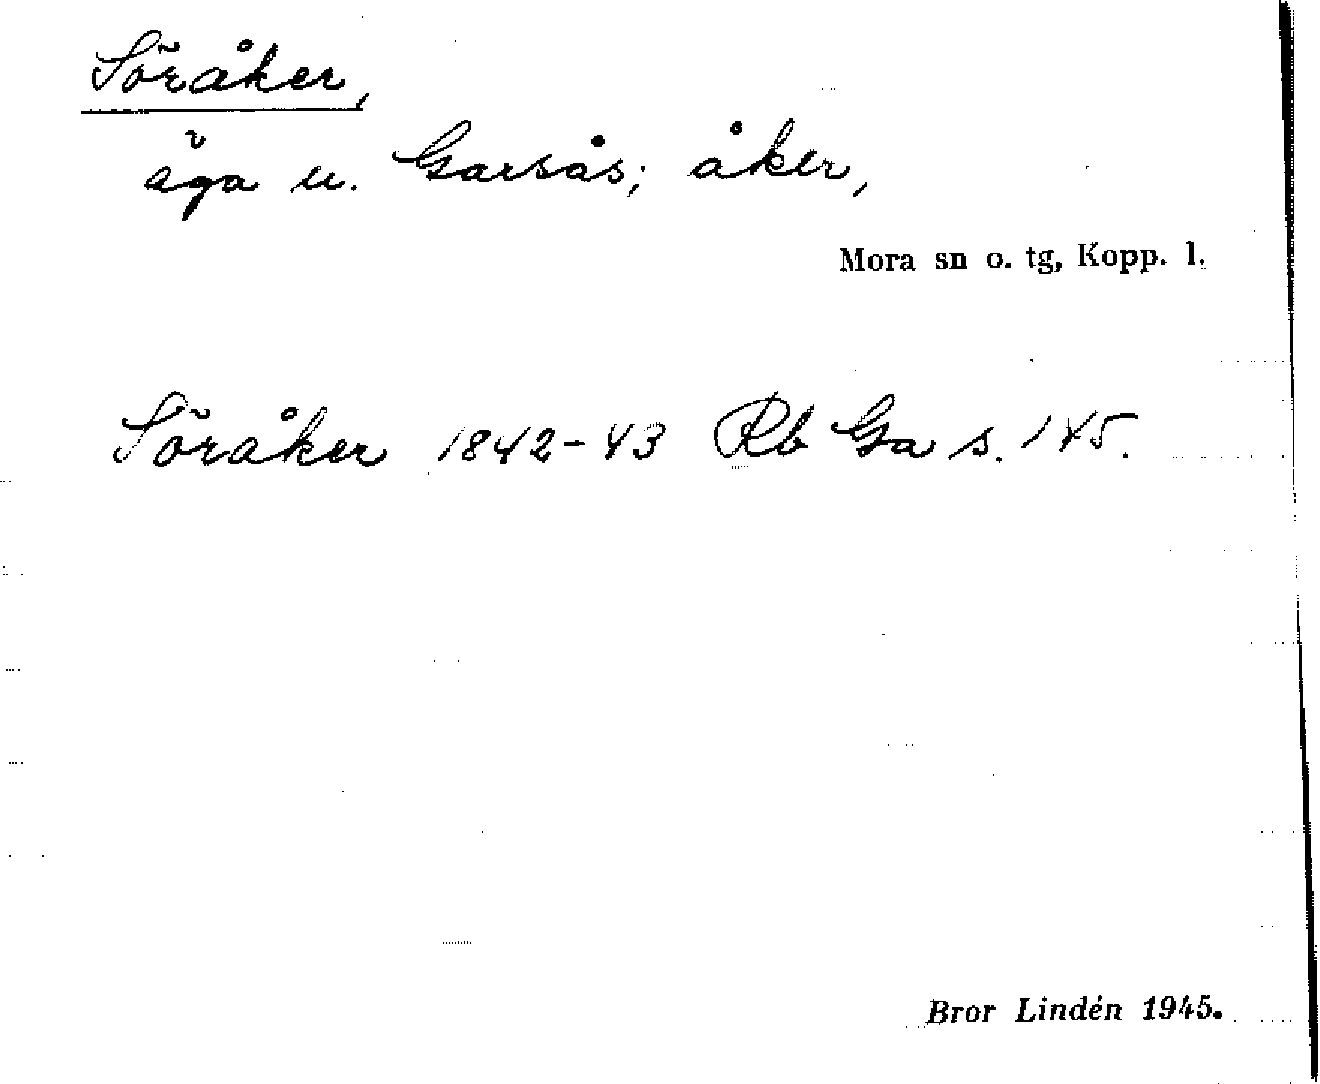 Söråker,
äga u. Garsås; åker,
Mora sn o. tg, Kopp. l.
Söråker 1842-43 Rb Ga s. 145.
Bror Lindén 1945.